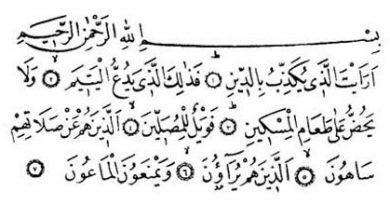 بِسْمِ اللهِ الرَّحْمٰنِ الرَّحِيمِ
اَرَاَيْتَ الَّذٖى يُكَذِّبُ بِالدّٖينِ ١ فَذٰلِكَ الَّذٖى يَدُعُّ الْيَتٖيمَ ٢ وَلَا
يَحُضُّ عَلٰى طَعَامِ الْمِسْكٖينِ ٣ فَوَيْلٌ لِلْمُصَلّٖينَ ٤ اَلَّذٖينَ هُمْ عَنْ صَلَاتِهِمْ
سَاهُونَ ٥ اَلَّذٖينَ هُمْ يُرَاؤُنَ ٦ وَيَمْنَعُونَ الْمَاعُونَ ٧